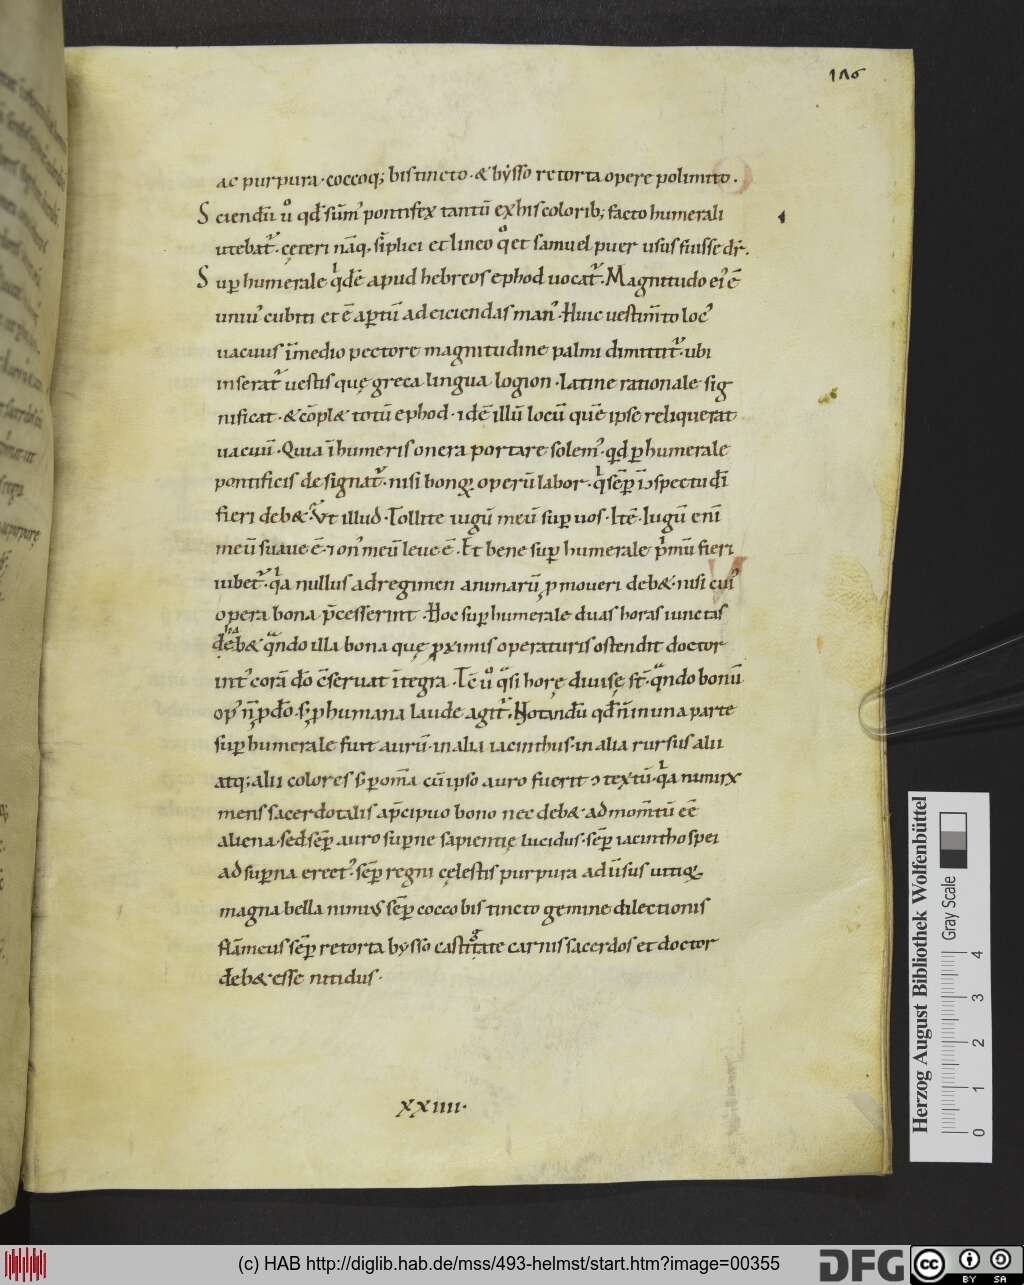 176
ac purpura · coccoq; bis tincto · & bysso retorta opere polimito .
Sciendū ů qđ sūm' pontifex tantū ex his colorib; facto humerali
utebat᷑ · cęteri nāq, sīplici et lineo q̊ et samuel puer usus fuisse dr̄.
Sup humerale qͥdē apud hebreos ephod uocat᷑ · Magnitudo ei' ē
unius' cubiti et ē aptū ad eiciendas man' · Huic uestim̄to loc'
uacuus ī medio pectore magnitudine palmi dimittit᷑ · ubi
inserat᷑ uestis quę greca lingua logion · Latine rationale sig
nificat · & cōpl& totū ephod · idē illū locū quē ipse reliquerat
uacuū · Quia ī humeris onera portare solem' · qđ phumerale
pontificis designat᷑ · nisi bonoꝝ operū labor · qͥ sēp īↄspectu dī
fieri deb& · Vt illud · Tollite iugū meū sup uos · Itē · Iugū enī
meū suaue ē · ⁊ on' meū leue ē · Et bene sup humerale p̄mū fieri
iubet᷑ · qͥa nullus ad regimen animarū ꝓmoueri deb& · nisi cui'
opera bona p̄cesserint · Hoc sup humerale duas horas iunctas
deb& qͣndo illa bona quę ꝓximis operaturis ostendit doctor
int' corā dō c̄seruat ītegra · Tc̄ ů qͣsi horę diuisę st̄ · qͣndo bonū
op' n̄ p dō · s; p humana laude agit᷑ · Notandū qđ n̄ in una parte
sup humerale fuit aurū · in alia iacinthus · in alia rursus alii
atq; alii colores s; p om̄a cū ipso auro fuerit ↄtextū · qͥa nimirx
mens sacerdotalis a p̄cipuo bono nec deb& · ad mom̄tū eē
aliena · sed sēp auro supne sapientię lucidus · sēp iacintho spei
ad supna erect' · sēp regni cęlestis purpura ad ūsus uitioꝝ
magna bella nimius sēp cocco bis tincto gemine dilectionis
flāmeus sēp retorta bysso castitate carnis sacerdos et doctor
deb& esse nitidus ·
XXIIII ·
Herzog August Bibliothek Wolfenbüttel
Gray Scale
0 1 2 3 4
(c) HAB http://diglib.hab.de/mss/493-helmst/start.htm?image=00355
DFG
cc BY SA